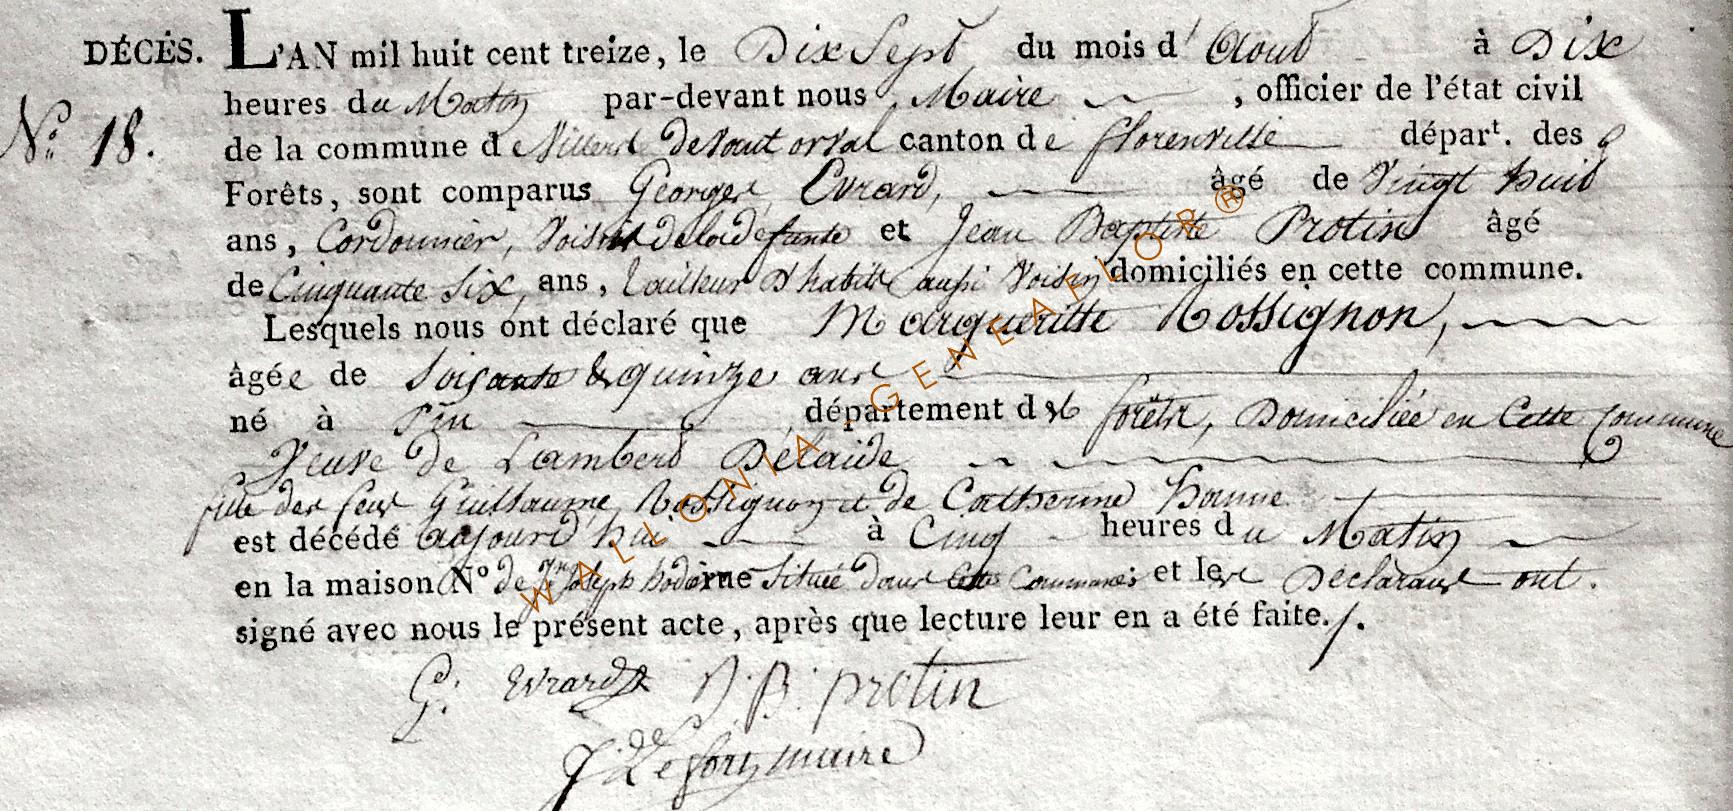 DÉCÈS. L'AN mil huit cent treize, le Dix Sept du mois d' Aout à Dix
heures du Matin par-devant nous Maire , officier de l'état civil
N.º 18. de la commune de Villers devant orval canton de florenville départ. des
Forêts, sont comparus Georges Evrard, âgé de Vingt huit
ans, Cordonnier, Voisin de la defunte et Jean Baptiste Protin âgé
de Cinquante Six ans, tailleur d'habits aussi Voisin domiciliés en cette commune.
Lesquels nous ont déclaré que Margueritte Rossignon,
âgée de Soixante & quinze ans
né à Pin , département des forêts, Domiciliée en Cette Commune
Veuve de Lambert Delaide
fille des feus Guillaume Rossignon et de Catherine
est décédé aujourd'hui à Cinq heures du Matin
en la maison Nº de Joseph rue Située dans Cette Commune et les Declarans ont.
signé avec nous le présent acte, après que lecture leur en a été faite./.
G. Evrard J. B. protin
J. maire
WALLONIA - GENEAFLOR ®